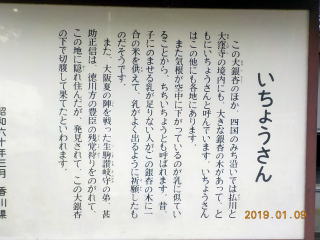 いちょうさん
この大銀杏のほか、四国のみち沿いでは払川と
大窪寺の境内にも、大きな銀杏の木があって、と
もにいちょうさんと呼んでいます。いちょうさん
はこの他にも各地にあります。
また気根が空中に下がっているのが乳に似てい
ることから、ちちいちょうとも呼ばれます。昔、
子にのませる乳が足りない人がこの銀杏の木に一
合の米を供えて、乳がよく出るように祈願したも
のだそうです。
また、大阪夏の陣を戦った生駒讃岐守の弟、甚
助正信は、徳川方の豊臣の残党狩りをのがれて、
この地に隠れ住んだが、発見されて、この大銀杏
の下で切腹して果てたといわれます。
昭和六十年三月 香川県
2019.01.09